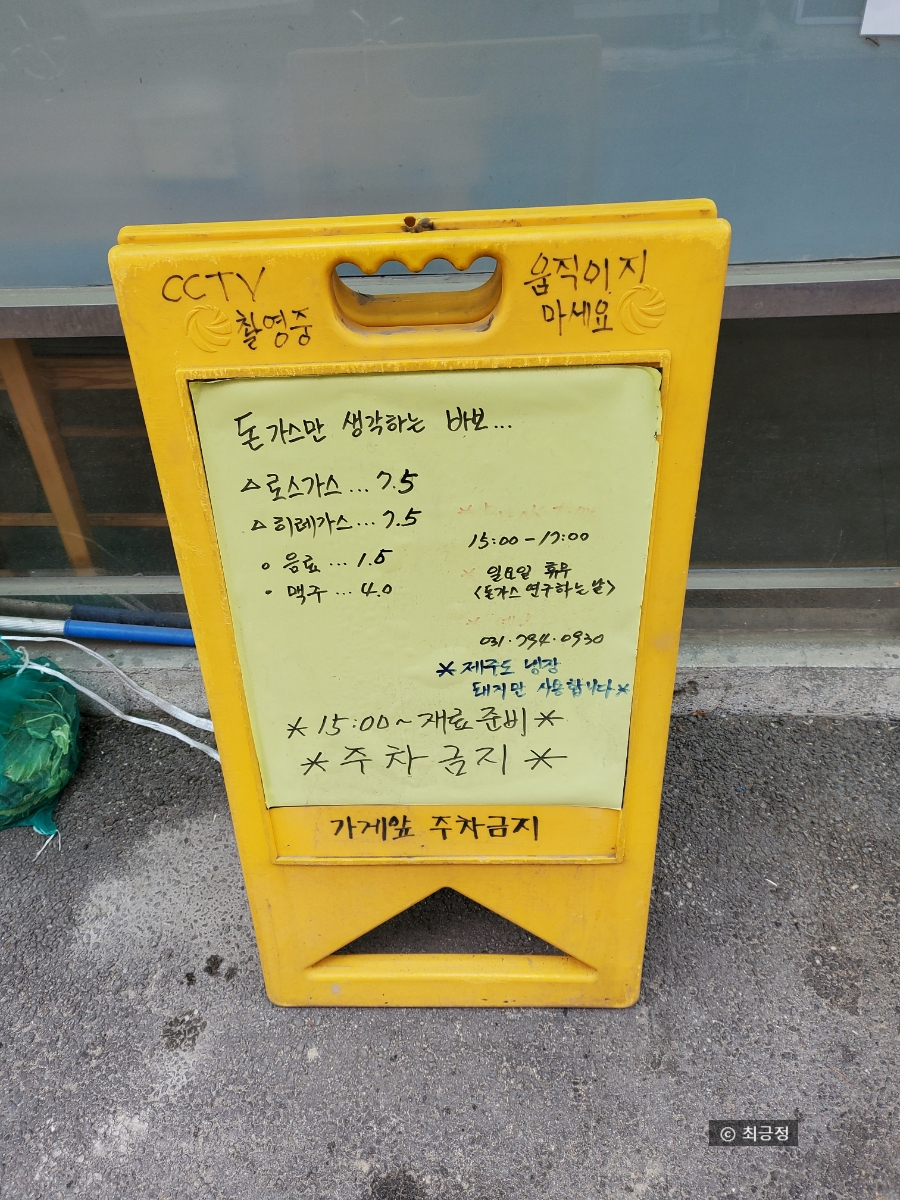 CCTV
촬영중
움직이지
마세요
돈가스만 생각하는 바보...
△로스가스...7.5
△히레가스...7.5
○ 음료...1.5
• 맥주...4.0
15:00-17:00
일요일 휴무
<돈가스 연구하는 날>
031.794.0930
*제주도 냉장
돼지만 사용합니다*
*15:00~재료준비*
*주차금지*
가게앞 주차금지
© 최긍정